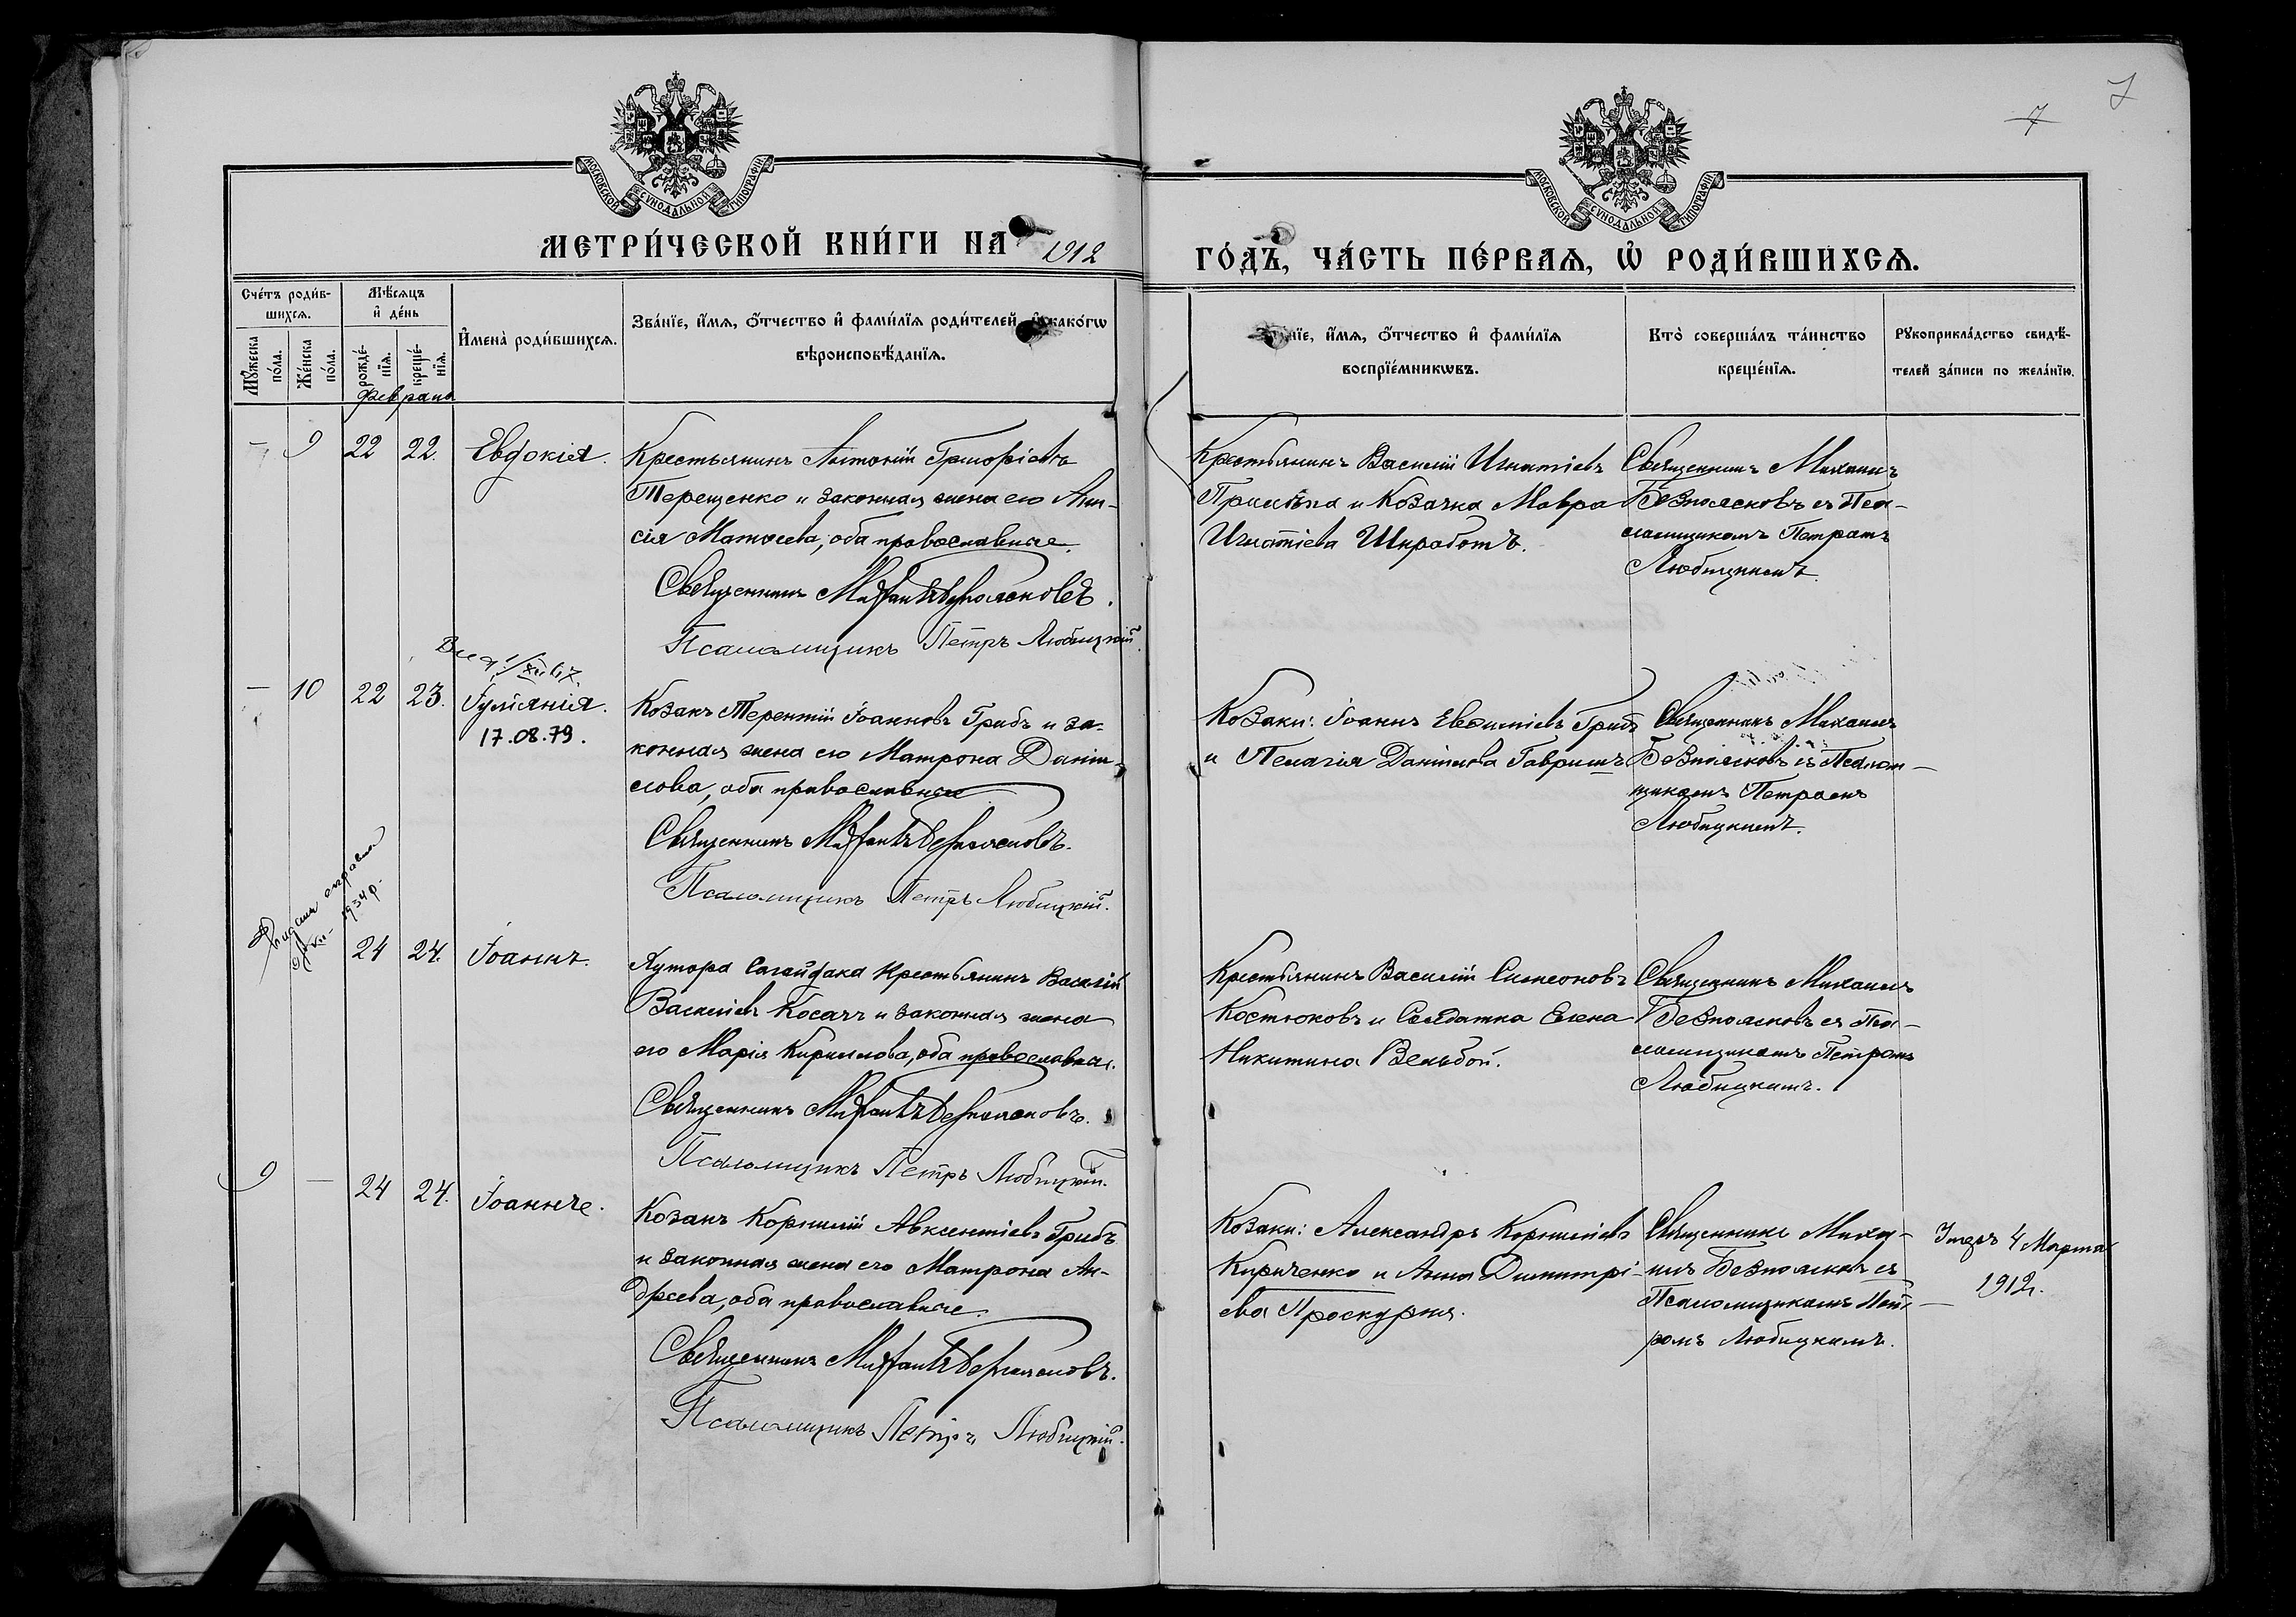 7
7
МОСКОВСКОЙ СѴНОДАЛЬНОЙ ТИПОГРАФІИ
МОСКОВСКОЙ СѴНОДАЛЬНОЙ ТИПОГРАФІИ
МЕТРИ́ЧЕСКОЙ КНИ́ГИ НА 1912
ГО́ДЪ, ЧА́СТЬ ПЕ́РВАѦ, Ѿ РОДИ́ВШИХСѦ.
Сче́тъ роди́в-
шихсѧ.
Мꙋ́жеска по́ла.
Же́нска по́ла.
Мѣ́сѧцъ
и҆ де́нь
рожде́-
нїѧ.
креще́-
нїѧ.
И҆мена̀ роди́вшихсѧ.
Зва́нїе, и҆́мѧ, ѻ҆́тчество и҆ фами́лїѧ роди́телей, и҆ како́гѡ
вѣроисповѣ́данїѧ.
Зва́нїе, и҆́мѧ, ѻ҆́тчество и҆ фами́лїѧ
воспрїе́мникѡвъ.
Кто̀ соверша́лъ та́инство
креще́нїѧ.
Рꙋкоприкла́дство свидѣ́-
телей за́писи по жела́нїю.
Февраль
— 9 22 22. Евдокія.
Крестьянинъ Антоній Григоріевъ
Терещенко и законная жена его Ани-
сія Матѳеева, оба православные.
Священникъ Михаилъ Безпоясковъ.
Псаломщикъ Петръ Любицкій.
Крестьянинъ Василій Игнатіевъ
и Козачка Мавра
Игнатіева Шкработъ.
Священникъ Михаилъ
Безпоясковъ съ Пса-
ломщикомъ Петромъ
Любицкимъ.
— 10 22 23. Іуліанія.
17.08.79.
Козакъ Терентій Іоанновъ Грибъ и за-
конная жена его Матрона Даніи-
лова, оба православные
Священникъ Михаилъ Безпоясковъ.
Псаломщикъ Петръ Любицкій.
Козаки: Іоаннъ Евѳиміевъ Грибъ
и Пелагія Даніилова Гавришъ
Священникъ Михаилъ
Безпоясковъ съ Псалом-
щикомъ Петромъ
Любицкимъ.
1934 р.
24 24. Іоаннъ.
Хутора Сагайдака Крестьянинъ Василій
Василіевъ Косачъ и законная жена
его Марія Кириллова, оба православные.
Священникъ Михаилъ Безпоясковъ.
Псаломщикъ Петръ Любицкій.
Крестьянинъ Василій Симеоновъ
Костюковъ и Солдатка Елена
Никитина Вельбой.
Священникъ Михаилъ
Безпоясковъ съ Пса-
ломщикомъ Петромъ
Любицкимъ.
9 — 24 24. Іоаннъ.
Козакъ Корнилій Авксентіевъ Грибъ
и законная жена его Матрона Ан-
дреева, оба православные.
Священникъ Михаилъ Безпоясковъ.
Псаломщикъ Петръ Любицкій.
Козаки: Александръ Корниліевъ
Кириченко и Анна Димитрі-
ева Проскурня.
Священникъ Миха-
илъ Безпоясковъ съ
Псаломщикомъ Пет-
ромъ Любицкимъ.
Умеръ 4 Марта
1912 г.